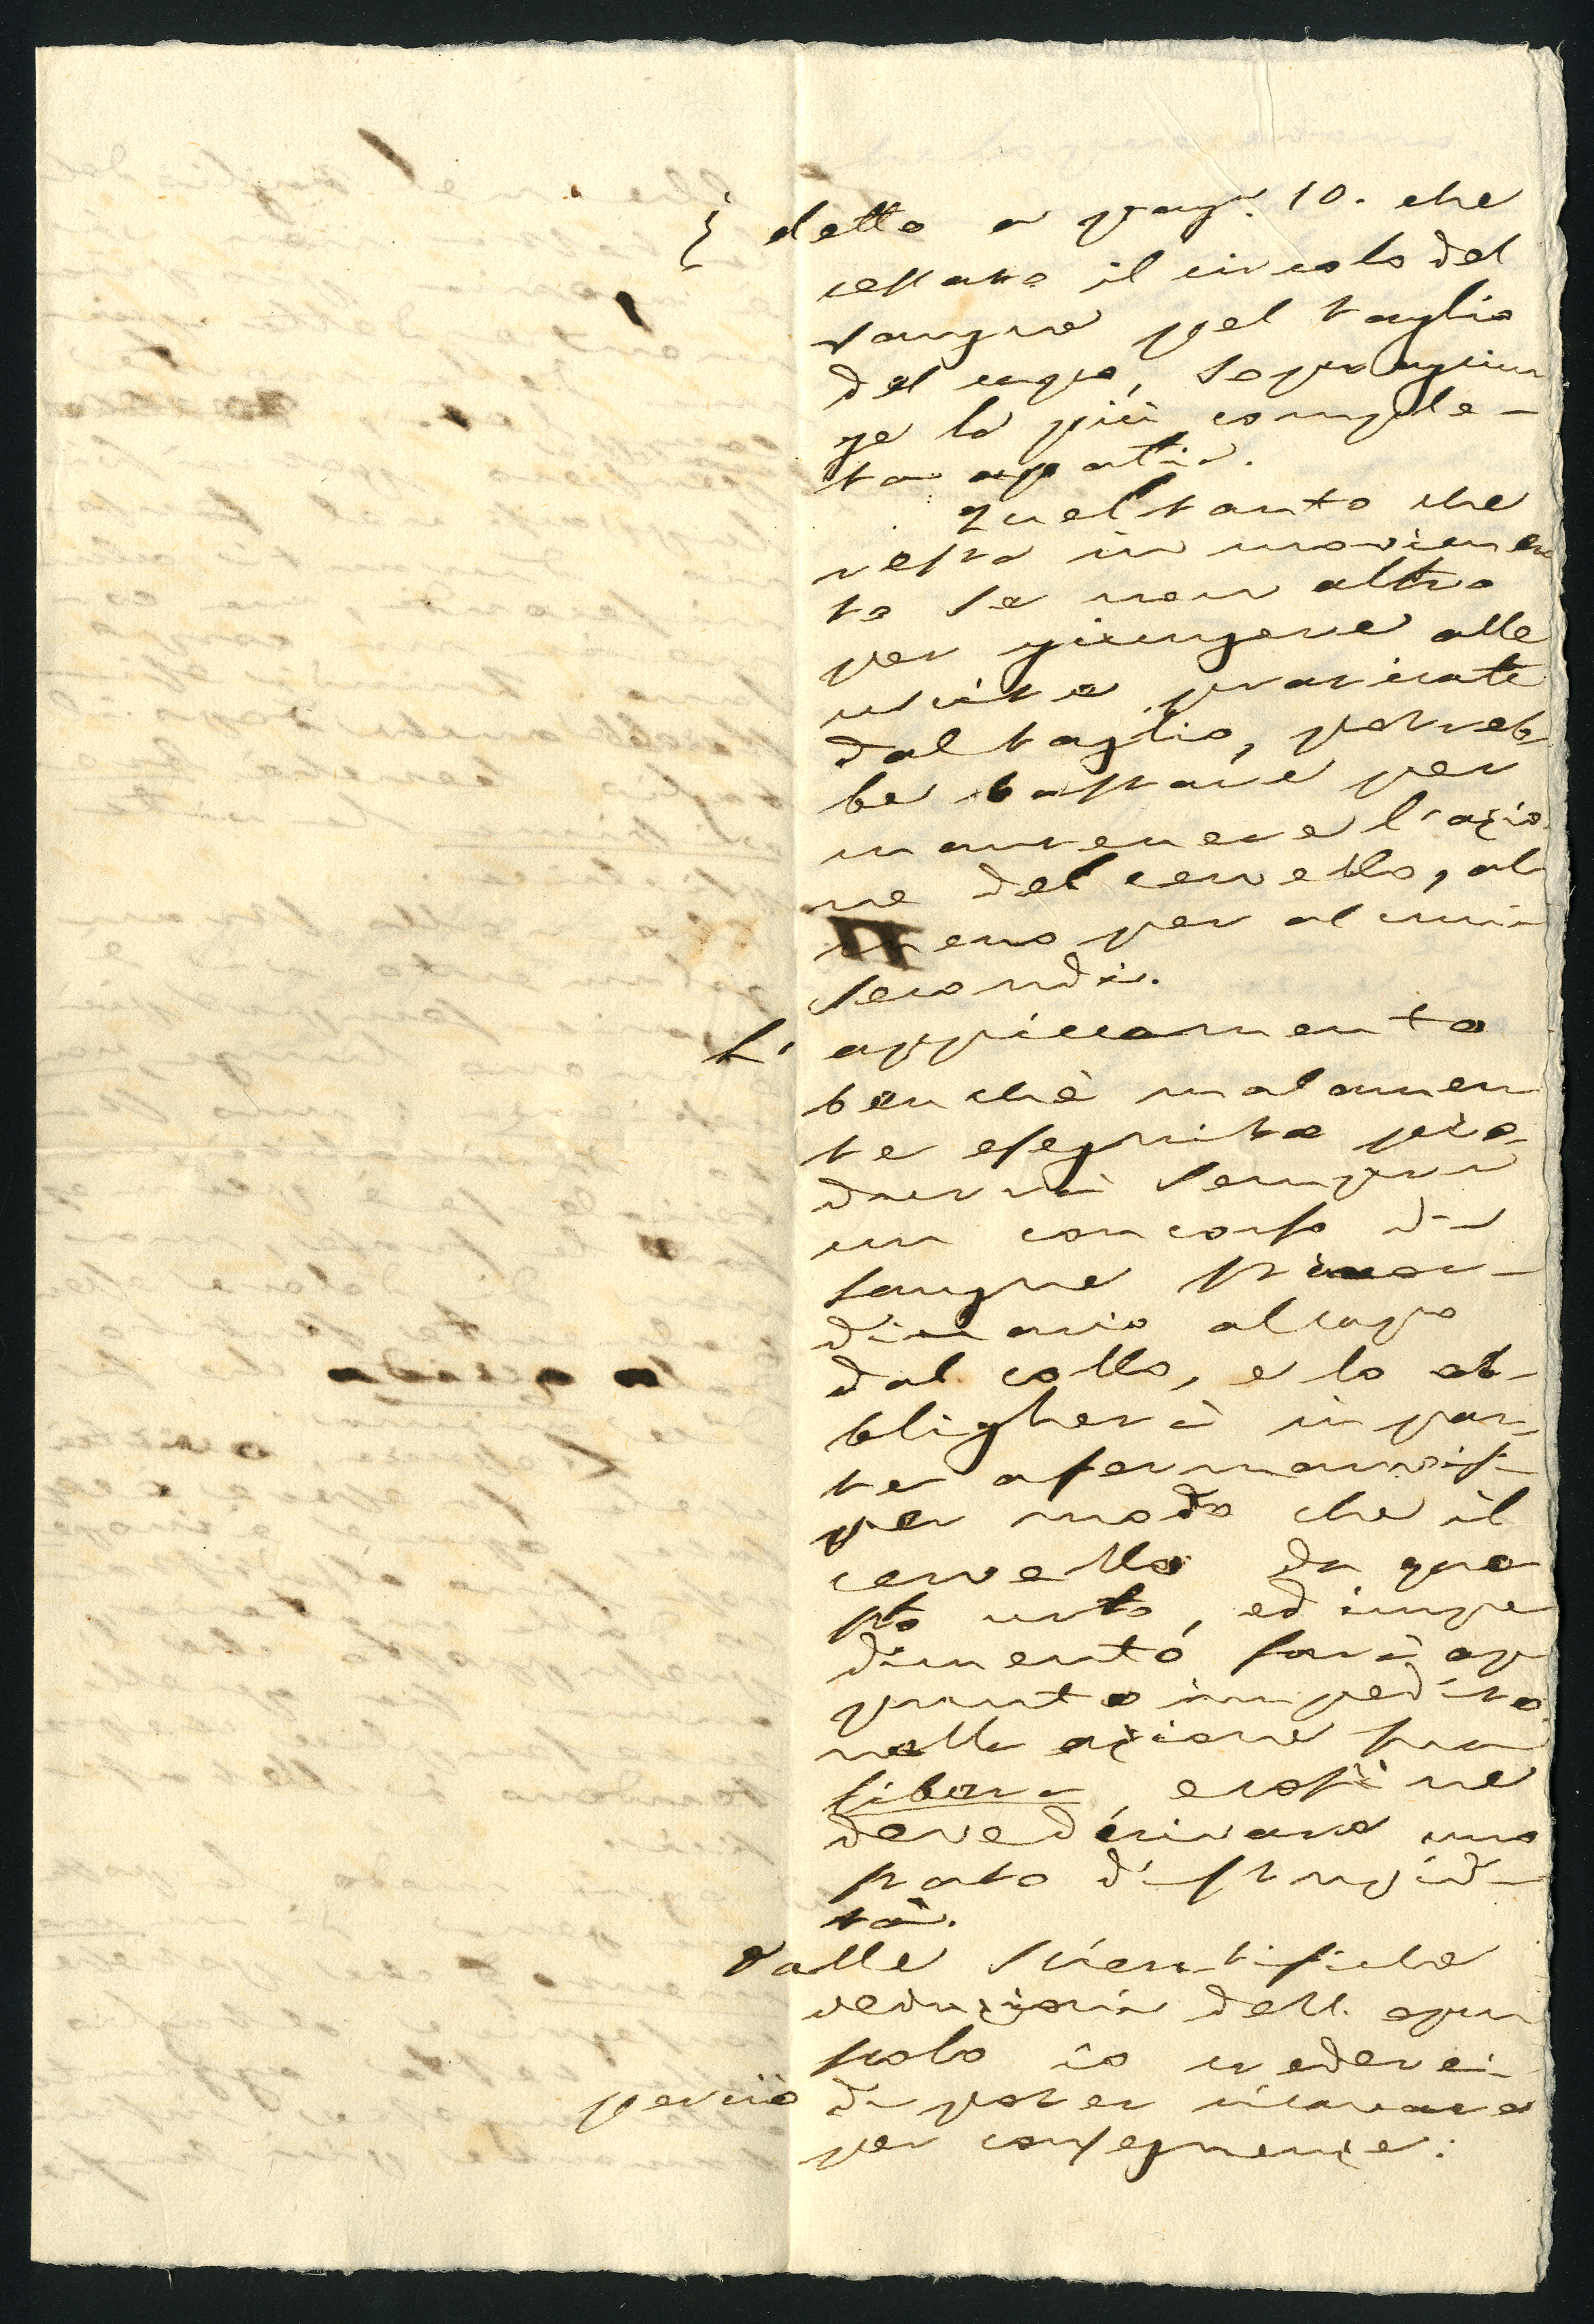 È detto a pag. 10. che
cessato il circolo del
sangue pel taglio
del capo, sopraggiun
ge la più comple-
ta apatia.
Quel tanto che
resta in movimen
to se non altro
per giungere alle
uscite praticate
dal taglio, potreb
be bastare per
mantenere l'azio
ne del cervello, al
meno per alcuni
secondi.
L' appiccamento
benchè malamen
te eseguito pro
durrà sempre
un concorso di
sangue straor-
dinario al capo
dal collo, e lo ob-
bligherà in par
te a fermarvisi
per modo che il
cervello da que
sto urto, ed impe
dimento sarà ap
punto impedito
nella azione sua
libera, e così ne
deve derivare uno
stato di stupidi
tà.
Dalle scientifiche
deduzioni dell' opu
scolo io crederei
perciò di poter ricavare
per conseguenze: